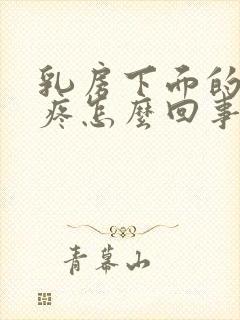 乳房下面的
疼怎麼回事
青幕山